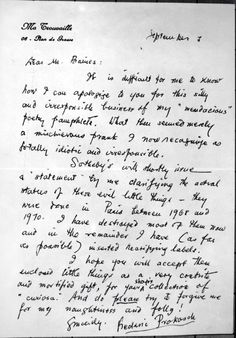 Ma Trouvaille
06 - Plan de Grasse
September 7
Dear Mr. Baines:
It is difficult for me to know
how I can apologize to you for this silly
and irresponsible business of my "mendacious"
poetry pamphlets. What then seemed merely
a mischievous prank I now recognize as
totally idiotic and irresponsible.
Sotheby's will shortly issue
a "statement" by me clarifying the actual
status of these evil little things — they
were done in Paris between 1968 and
1970. I have destroyed most of them now
and in the remainder I have (as far
as possible) inserted rectifying labels.
I hope you will accept these
enclosed little things as a very contrite
and mortified gift, for your collection of
"curiosa". And do please try to forgive me
for my naughtiness and folly!
Sincerely, Frederic Prokosch